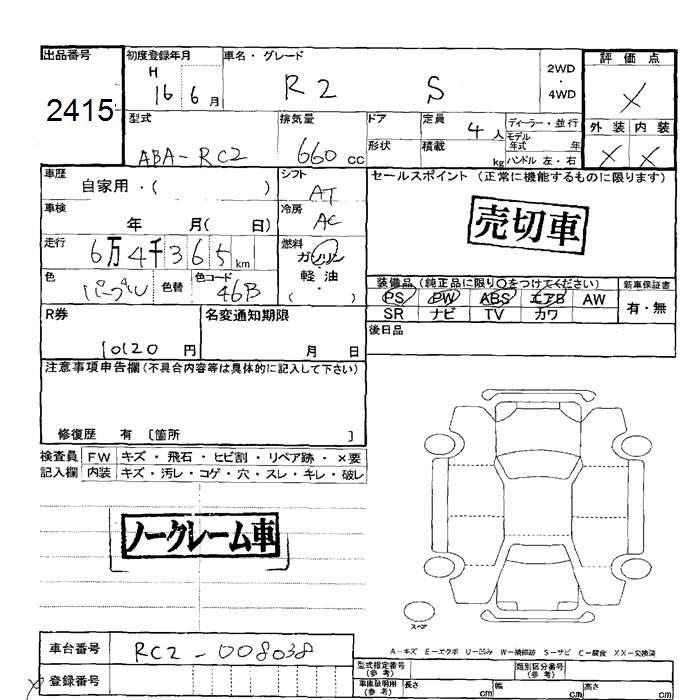 出品番号 初度登録年月 車名・グレード 評価点
2415 H 16 6月 R2 S 2WD・4WD X
型式 排気量 ドア 定員 4人 ディーラー・並行 外装 内装
ABA-RC2 660cc 形状 積載 kg モデル年式 年 ハンドル 左・右 X X
車歴 自家用・( ) シフト AT セールスポイント (正常に機能するものに限ります)
車検 年 月( 日) 冷房 AC 売切車
走行 6万4千365km 燃料 ガソリン 軽油 ( ・ )
色 パープル 色替 色コード 46B 装備品(純正品に限り○をつけてください) 新車保証書
PS PW ABS エアB AW 有・無
SR ナビ TV カワ
R券 10120円 名変通知期限 月 日 後日品
注意事項申告欄(不具合内容等は具体的に記入して下さい)
修復歴 有 〔箇所 〕
検査員 FW キズ・飛石・ヒビ割・リペア跡・×要
記入欄 内装 キズ・汚レ・コゲ・穴・スレ・キレ・破レ
ノークレーム車
スペア
A-キズ E-エクボ U-凹み W-補修跡 S-サビ C-腐食 XX-交換済
車台番号 RC2-008038 型式指定番号(参考) 類別区分番号(参考)
登録番号 車庫証明用(参考) 長さ cm 幅 cm 高さ cm